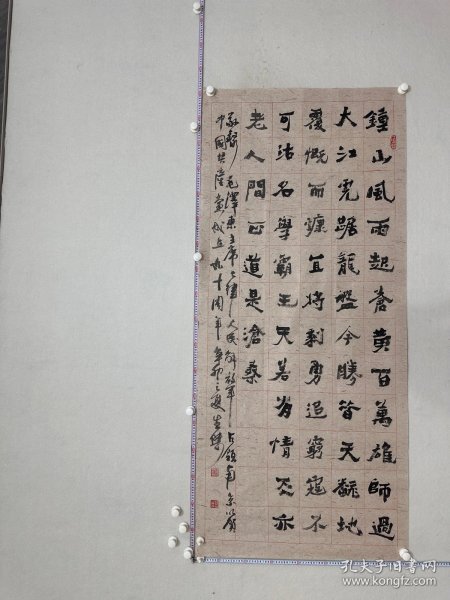 鍾山風雨起蒼黄百萬雄師過
大江虎踞龍盤今勝昔天翻地
覆慨而慷宜將剩勇追窮寇不
可沽名學霸王天若有情天亦
老人間正道是滄桑
毛澤東主席七律人民解放軍占領南京以賀
中國共產黨成立九十周年辛卯之夏
孔夫子旧书网
www.kongfz.com